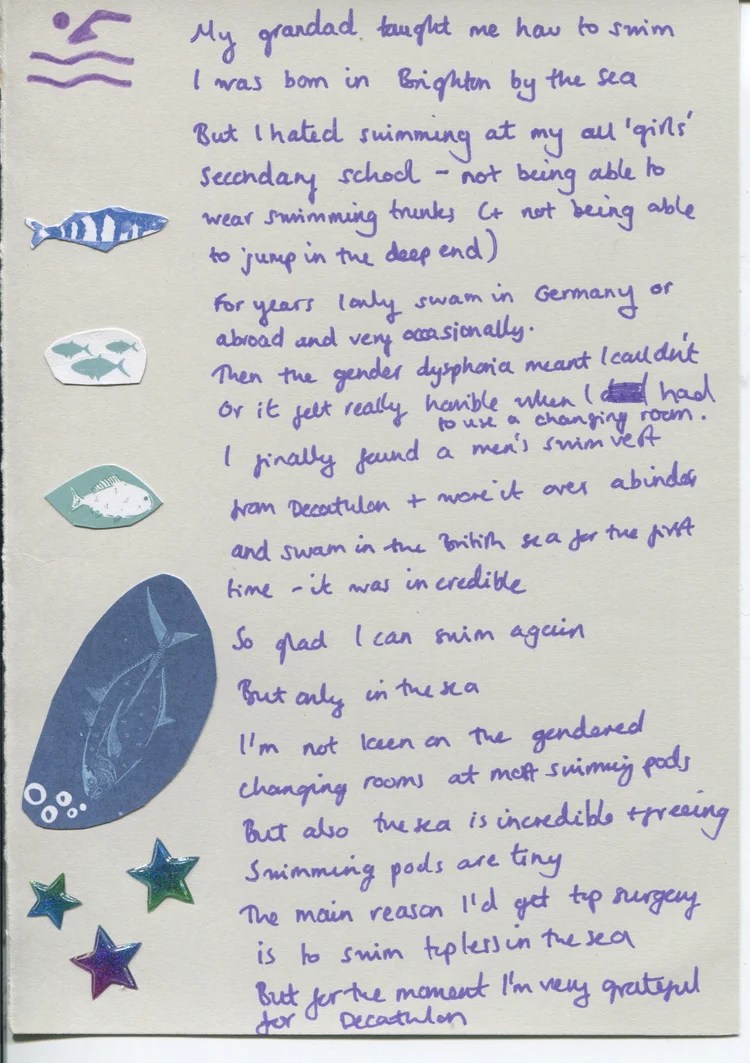 My grandad taught me how to swim
I was born in Brighton by the sea
But I hated swimming at my all 'girls'
Secondary school - not being able to
wear swimming trunks (+ not being able
to jump in the deep end)
For years I only swam in Germany or
abroad and very occasionally.
Then the gender dysphoria meant I couldn't
Or it felt really horrible when I had
to use a changing room.
I finally found a men's swim vest
from Decathlon + wore it over a binder
and swam in the British sea for the first
time - it was incredible
So glad I can swim again
But only in the sea
I'm not keen on the gendered
changing rooms at most swimming pools
But also the sea is incredible + freeing
Swimming pools are tiny
The main reason I'd get top surgery
is to swim topless in the sea
But for the moment I'm very grateful
for Decathlon